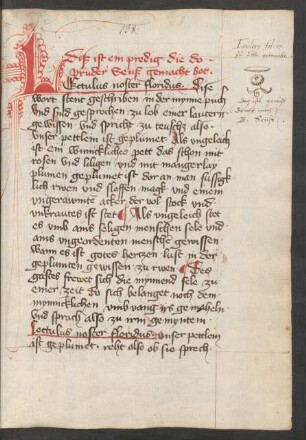 Diß ist ein predig die do
pruder Seuß gemacht hot
Lectulus noster floridus. Dise
wort stent geschriben in der mynne puch
vnd sind gesprochen zu lob einer lautern
gewissen vnd spricht zu teutsch also
vnser pettlein ist geplumet. Als vngeleich
ist ein wunnicliches pett das schon mit
rosen vnd liligen vnd mit mangerlay
plumen geplumet ist dor an man sussig
lich rwen vnd sloffen mag vnd einem
vngerawmte acker der vol stock vnd
vnkrautes ist Als vngeleich ist
es vmb ains seligen menschen sele vnd
ains vngeordenten mensche gewissen
wann es ist gotes hertzen lust in der
geplumten gewissen zu rwen Des
gastes frewet sich die mynnend sele zu
einer zeit do sich belanget noch dem
mynniclichen vmbvang irs gemaheln
vnd sprach also zu irm gemynten
Lectulus noster floridus. vnser pettlein
ist geplumet. reht also ob sie sprech